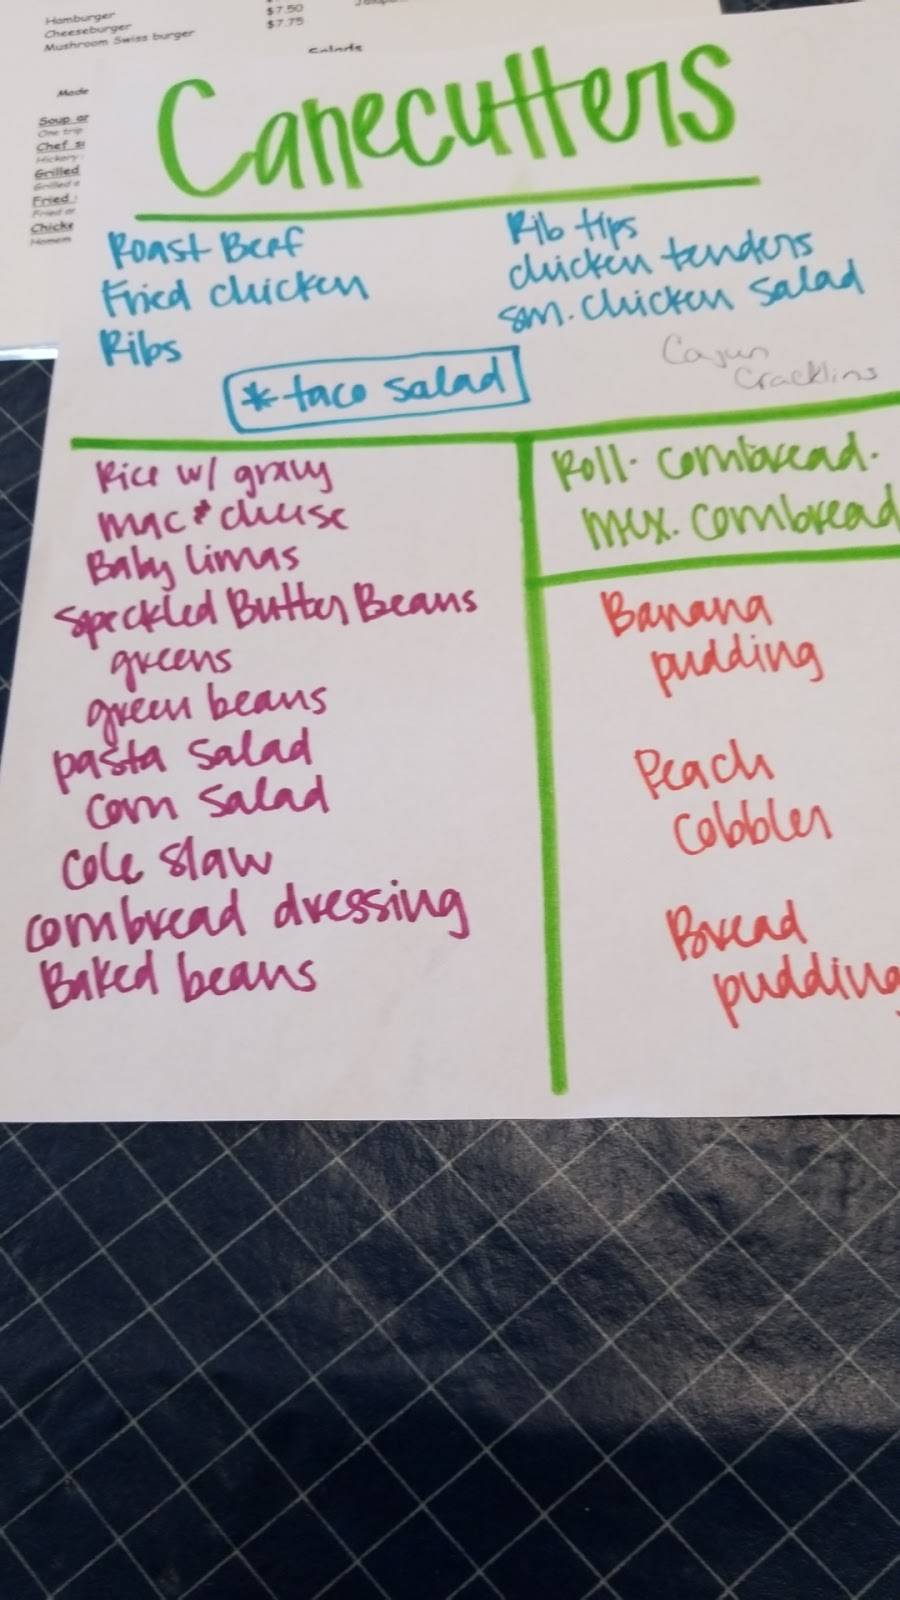 Hamburger
Cheeseburger $7.50
Mushroom Swiss burger $7.75
Salads
Made
Soup or
One trip
Chef s
Hickory
Grilled
Grilled
Fried
Fried
Chicke
Homem
Canecutters
Roast Beef
Fried chicken
Ribs
Rib tips
chicken tenders
sm. chicken salad
Cajun
Cracklins
* taco salad
Rice w/ gravy
mac & cheese
Baby limas
Speckled Butter Beans
greens
green beans
pasta salad
corn salad
Cole slaw
cornbread dressing
Baked beans
Roll. cornbread.
mex. cornbread
Banana
pudding
Peach
Cobbler
Bread
pudding